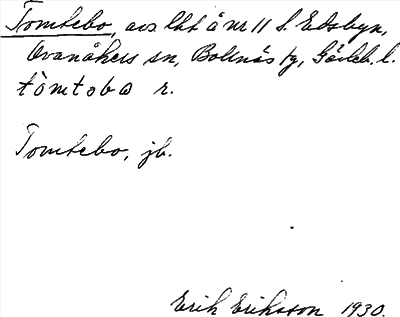 Tomtebo, avs lht å nr 11 s. Edsbyn,
Ovanåkers sn, Bollnäs tg, Gävleb. l.
tòmtobo r.
Tomtebo, jb.
Erik Eriksson 1930.